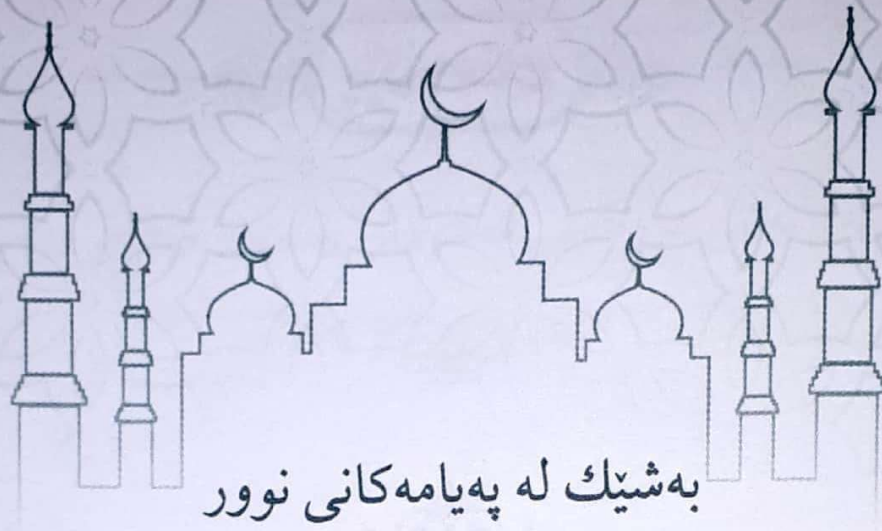 بەشێك لە پەیامەکانی نوور